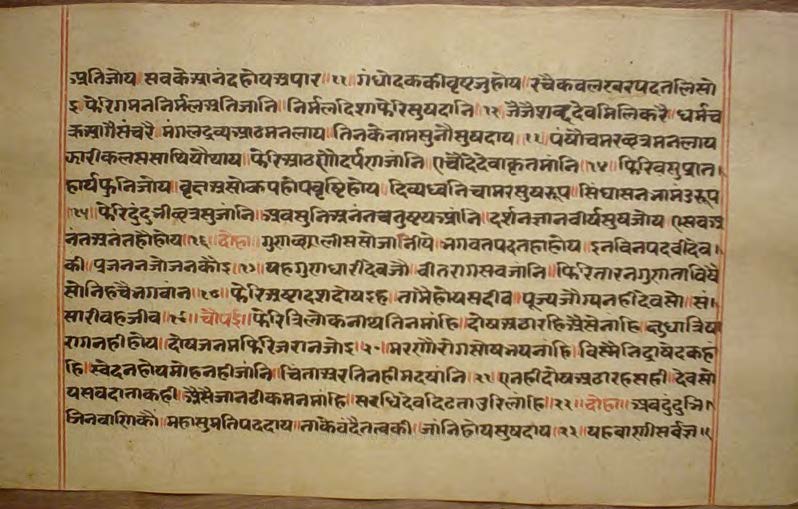 प्रतिजोय॥सबकेआनंदहोयअपार॥११॥गंधोदककीवृष्टजुहोय॥रचैकवलखरपदतलिसो
इ॥फेरिगमननिर्मलअतिजानि॥निर्मलदिशाफेरिसुषदानि॥१२॥जैजैशब्ददेवमिलिकरै॥धर्मच
क्रआगैसंचरै॥मंगलद्रव्यआठमनलाय॥तिनकेनामसुनौसुषदाय॥१३॥पंषौचमरछत्रमनलाय
झारीकलससाथियौथाय॥फेरिआठमौदर्पणजांनि॥एचौदैदेवाकृतमांनि॥१४॥फिरिवसुप्रात
हार्यफुनिजोय॥वृक्षअसोकपहोपवृष्टिहोय॥दिव्यध्वनिचामरसुषरूप॥सिंघासननामंडरूप
॥१५॥फेरिदुंदुभीछत्रसुजांनि॥अवसुनिअनंतचतुष्टयआंनि॥दर्शनज्ञानवीर्यसुषजोय॥एसवअ
नंतअनंतहीहोय॥१६॥दोहा॥गुणछ्यालीससोजांनिये॥भगवतपदतहाहोय॥इनविनपदवीदेव
की॥पूजननजोजनकोइ॥१७॥यहगुणधारीदेवजौ॥वीतरागसवजांनि॥फिरितारनगुणताविषै
सोनिहचैभगवांन॥१८॥फेरिअष्टादशदोषइह॥तामैहोयसदीव॥पूज्यजोग्यनहीदेवसो॥सं
सारीवहजीव॥१९॥चौपई॥फेरित्रिलोकनाथतिनमांहि॥दोषअठारहिऔसेनांहि॥क्षुधात्रिष
रागनहीहोय॥दोषजनमफिरिजरानजोइ॥२०॥मरणौरोगसोषभयनांहि॥विस्मैनिद्राषेदकहां
हि॥स्वेदनहोयमोहनहीजांनि॥चिंताअरतिनहीमदषांनि॥२१॥एनहीदोषअठारहसही॥देवसो
यसवदाताकही॥औसैजानठीकमनमांहि॥सरधिदेवदिढताउरिलांहि॥२२॥दोहा॥अवदुंदुभि
जिनवाणिकौं॥महासुमतिपददाय॥ताकेवंदैतत्वकी॥जांनिहोयसुषदाय॥२३॥यहवाणीसर्वज्ञ॥